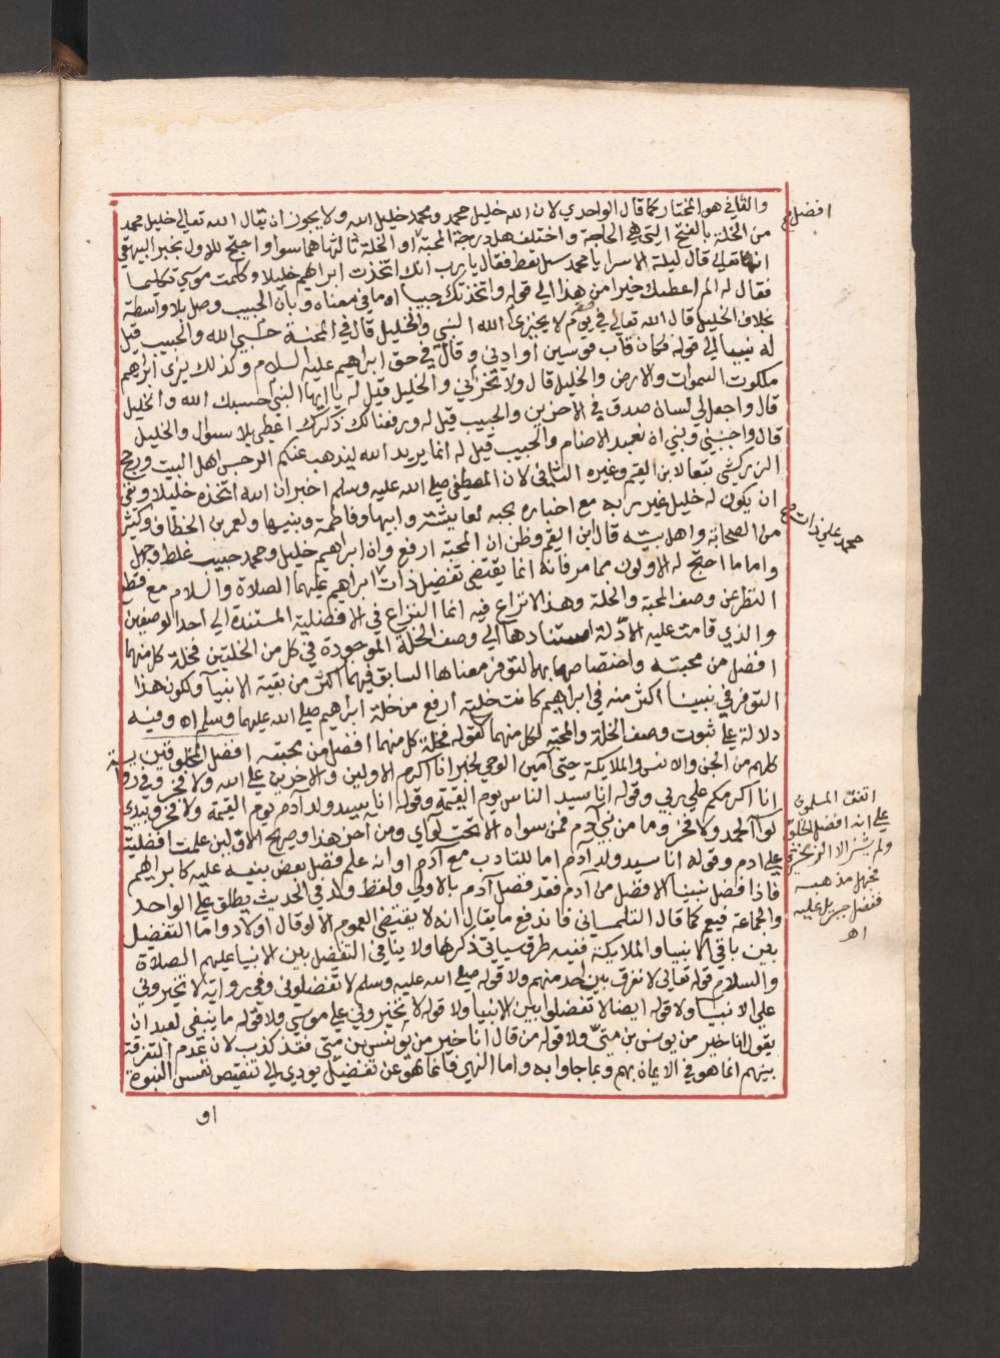 والثاني هو المختار كما قال الواحدي لان الله خليل محمد ومحمد خليل الله ولا يجوز ان يقال الله تعالى خليل محمد
من الخلة بالفتح التي هي الحاجة واختلف هل درجة المحبة او الخلة ثالثها هما سواء واحتج للاول بخبر البيهقي
انه تعالى قال ليلة الاسرا يا محمد سل تعط فقال يا رب انك اتخذت ابراهيم خليلا وكلمت موسى تكليما
فقال له الم اعطك خيرا من هذا الى قوله واتخذتك حبيبا او ما في معناه وبان الحبيب وصل بلا واسطة
بخلاف الخليل قال الله تعالى في يوم لا يخزي الله النبي والخليل قال في المحنة حسبي الله والحبيب قيل
له نبينا الى قوله فكان قاب قوسين او ادنى وقال في حق ابراهيم عليه السلام وكذلك نرى ابراهيم
ملكوت السموات والارض والخليل قال ولا تخزني والخليل قيل له يا ايها النبي حسبك الله والخليل
قال واجعل لي لسان صدق في الاخرين والحبيب قيل له ورفعنا لك ذكرك اعطى بلا سؤال والخليل
قال واجنبني وبني ان نعبد الاصنام والحبيب قيل له انما يريد الله ليذهب عنكم الرجس اهل البيت ورجح
الزركشي تبعا لابن القيم وغيره الثاني لان المصطفى صلى الله عليه وسلم اخبر ان الله اتخذه خليلا ونفى
ان يكون له خليل غير ربه مع اخباره بحبه لعايشة وابيها وفاطمة وبنيها ولعمر بن الخطاب وكثير
من الصحابة واهل بيته قال ابن القيم وظن ان المحبة ارفع وان ابراهيم خليل ومحمد حبيب غلط وجهل
واما ما احتج له الاولون مما مر فانه انما يقتضي تفضيل ذات ابراهيم عليهما الصلاة والسلام مع قطع
النظر عن وصف المحبة والخلة وهذا لا نزاع فيه انما النزاع في الافضلية المستندة الى احد الوصفين
والذي قامت عليه الادلة استنادها الى وصف الخلة الموجودة في كل من الخليلين فخلة كل منهما
افضل من محبته واختصاصهما بهما لتوفر معناها السابق فيهما اكثر من بقية الانبيا ولكون هذا
التوفر في نبينا اكثر منه في ابراهيم كانت خلته ارفع من خلة ابراهيم صلى الله عليهما وسلم اه وفيه
دلالة على ثبوت وصف الخلة والمحبة لكل منهما كقوله فخلة كل منهما افضل من محبته افضل المخلوقين
كلهم من الجن والانس والملايكة حتى امين الوحي لخبر انا اكرم الاولين والاخرين على الله ولا فخر
انا اكرمكم على ربي وقوله انا سيد الناس يوم القيمة وقوله انا سيد ولد آدم يوم القيمة ولا فخر وبيدي
لوا الحمد ولا فخر وما من نبي آدم فمن سواه الا تحت لواي ومن آخر هذا وصريح الاولين علمت افضليته
على ادم وقوله انا سيد ولد آدم اما للتادب مع آدم او انه علم فضل بعض بنيه عليه كابراهيم
فاذا فضل نبينا الافضل من آدم فقد فضل آدم بالاولى ولفظ ولد في الحديث يطلق على الواحد
والجماعة فيعم كما قال التلمساني فاندفع ما يقال انه لا يقتضي العموم الا لو قال اولاد واما التفضيل
بين باقي الانبيا والملايكة ففيه طرق سياتي ذكرها ولا ينافي التفضل بين الانبيا عليهم الصلاة
والسلام قوله تعالى لا نفرق بين احد منهم ولا قوله صلى الله عليه وسلم لا تفضلوني وفي رواية لا تخيروني
على الانبيا ولا قوله ايضا لا تفضلوا بين الانبيا ولا قوله لا تخيروني على موسى ولا قوله ما ينبغي لعبد ان
يقول انا خير من يونس بن متى ولا قوله من قال انا خير من يونس بن متى فقد كذب لان عدم التفرقة
بينهم انما هو في الايمان بهم وبما جاوا به واما النهي فانما هو عن تفضيل يودي الى تنقيص نفس النبوة
او
افضل
محمد على ذات
اتفق المسلمون
على انه افضل الخلق
ولم يشذ الا الزمخشري
فجهل مذهبه
ففضل جبريل عليه
اه